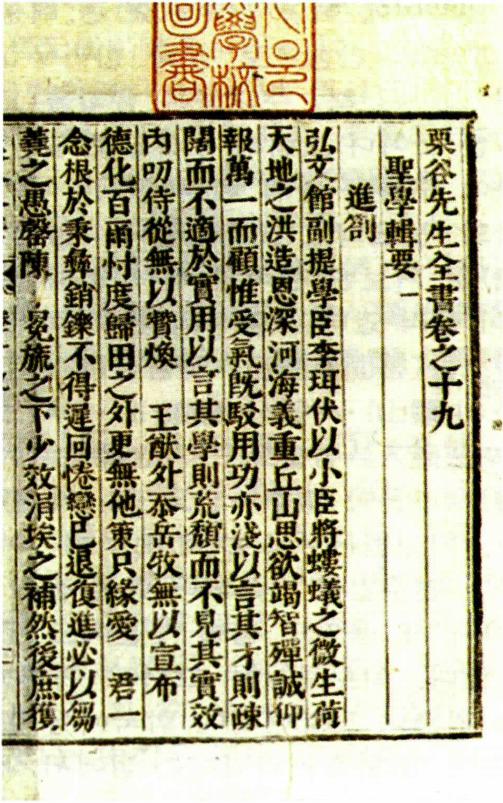 栗谷先生全書卷之十九
聖學輯要一
進劄
弘文館副提學臣李珥伏以小臣將螻蟻之微生荷
天地之洪造恩深河海義重丘山思欲竭智殫誠仰
報萬一而顧惟受氣旣駁用功亦淺以言其才則疎
闊而不適於實用以言其學則荒頹而不見其實效
內叨侍從無以贊煥　王猷外忝岳牧無以宣布
德化百爾忖度歸田之外更無他策只緣愛　君一
念根於秉彝銷鑠不得遲回惓戀已退復進必以芻
蕘之愚罄陳　冕旒之下少效涓埃之補然後庶獲
學校
圖書